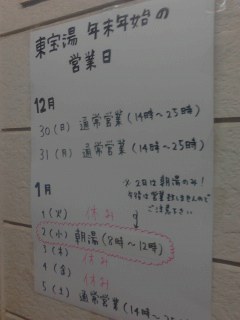 東宝湯 年末年始の
営業日
12月
30(日) 通常営業(14時〜25時)
31(月) 通常営業(14時〜25時)
1月
※2日は朝湯のみ!
午後は営業致しませんので
ご注意下さい
1(火) 休み
2(水) 朝湯(8時〜12時)
3(木) 休み
4(金) 休み
5(土) 通常営業(14時〜